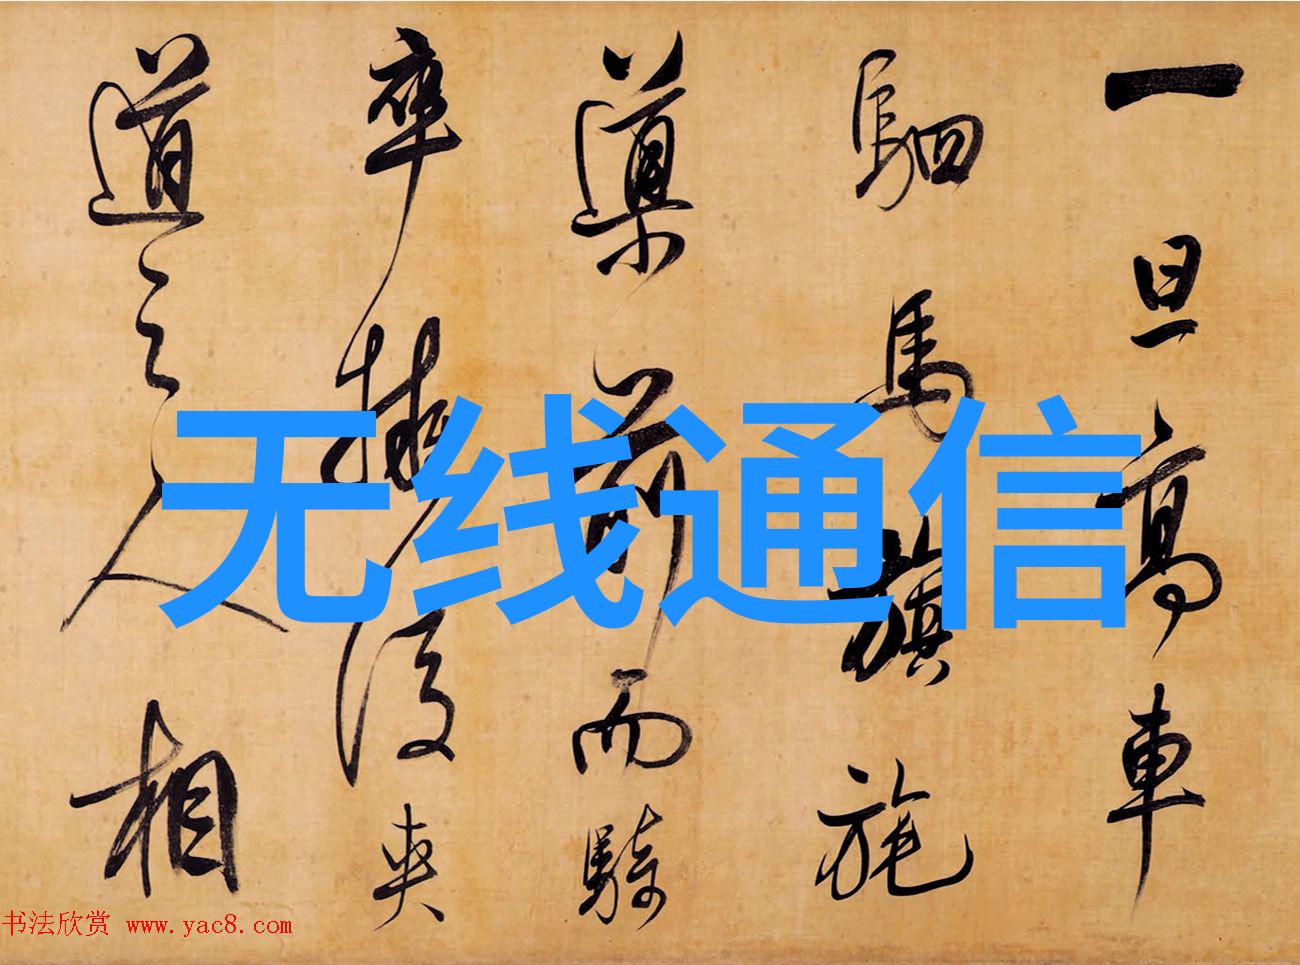 一旦高車
駟馬旗旄
導前而騎
卒擁後夾
道之人相
无线通信
书法欣赏 www.yac8.com